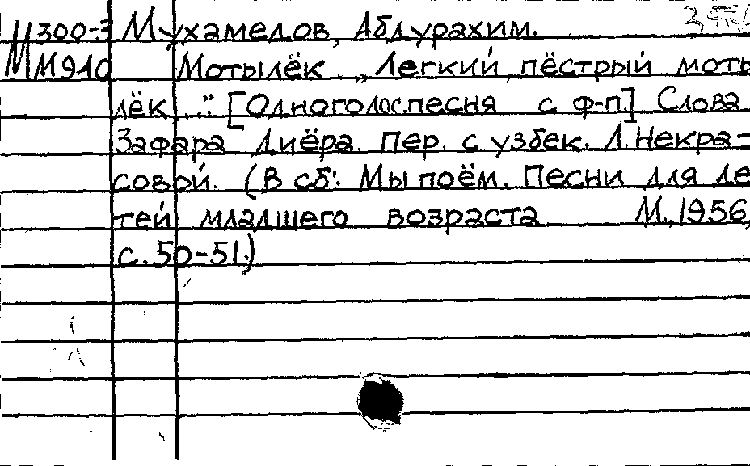 М 300-3 Мухамедов, Абдурахим.
М М910 Мотылёк. „Легкий пёстрый моты
лёк ..." [Одноголос.песня с ф-п.] Слова
Зафара Диёра. Пер. с узбек. Л.Некра=
совой. (В сб: Мы поём. Песни для де
тей младшего возраста М., 1956,
с. 50-51.)